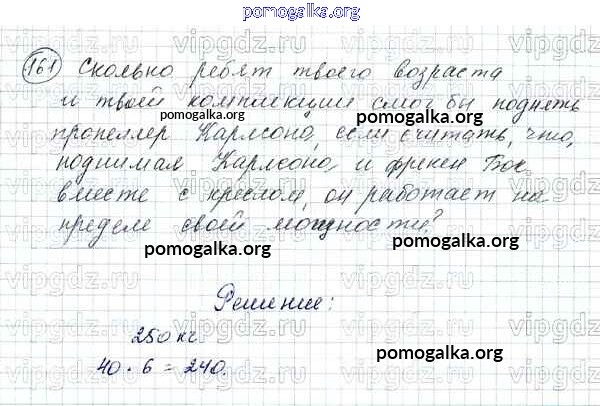 pomogalka.org
161 Сколько ребят твоего возраста
и твоей комплекции смог бы поднять
пропеллер Карлсона, если считать, что,
поднимая Карлсона, и фрекен Бок
вместе с креслом, он работает на
пределе своей мощности?
pomogalka.org
pomogalka.org
pomogalka.org
Решение:
250 кг.
pomogalka.org
40 · 6 = 240.
vipgdz.ru